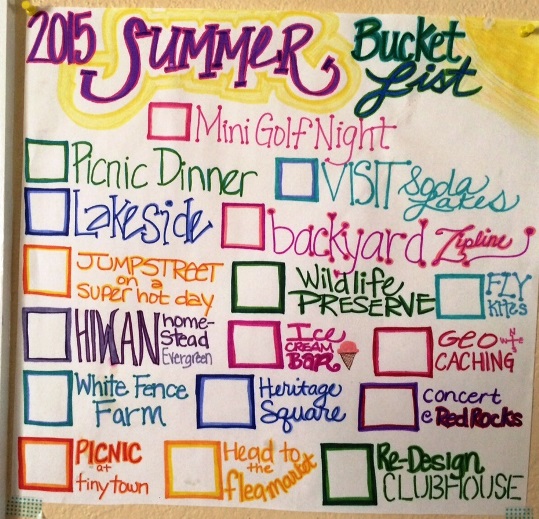 2015 SUMMER Bucket List
Mini Golf Night
Picnic Dinner
VISIT Soda Lakes
Lakeside
backyard Zipline
JUMPSTREET
on a
super hot day
Wildlife
PRESERVE
FLY
kites
HIWAN home-
stead
Evergreen
Ice
CREAM
BAR
GEO
CACHING
N
W E
S
White Fence
Farm
Heritage
Square
concert
@ Red Rocks
PICNIC
at
tiny town
Head to
the
flea market
Re-Design
CLUBHOUSE